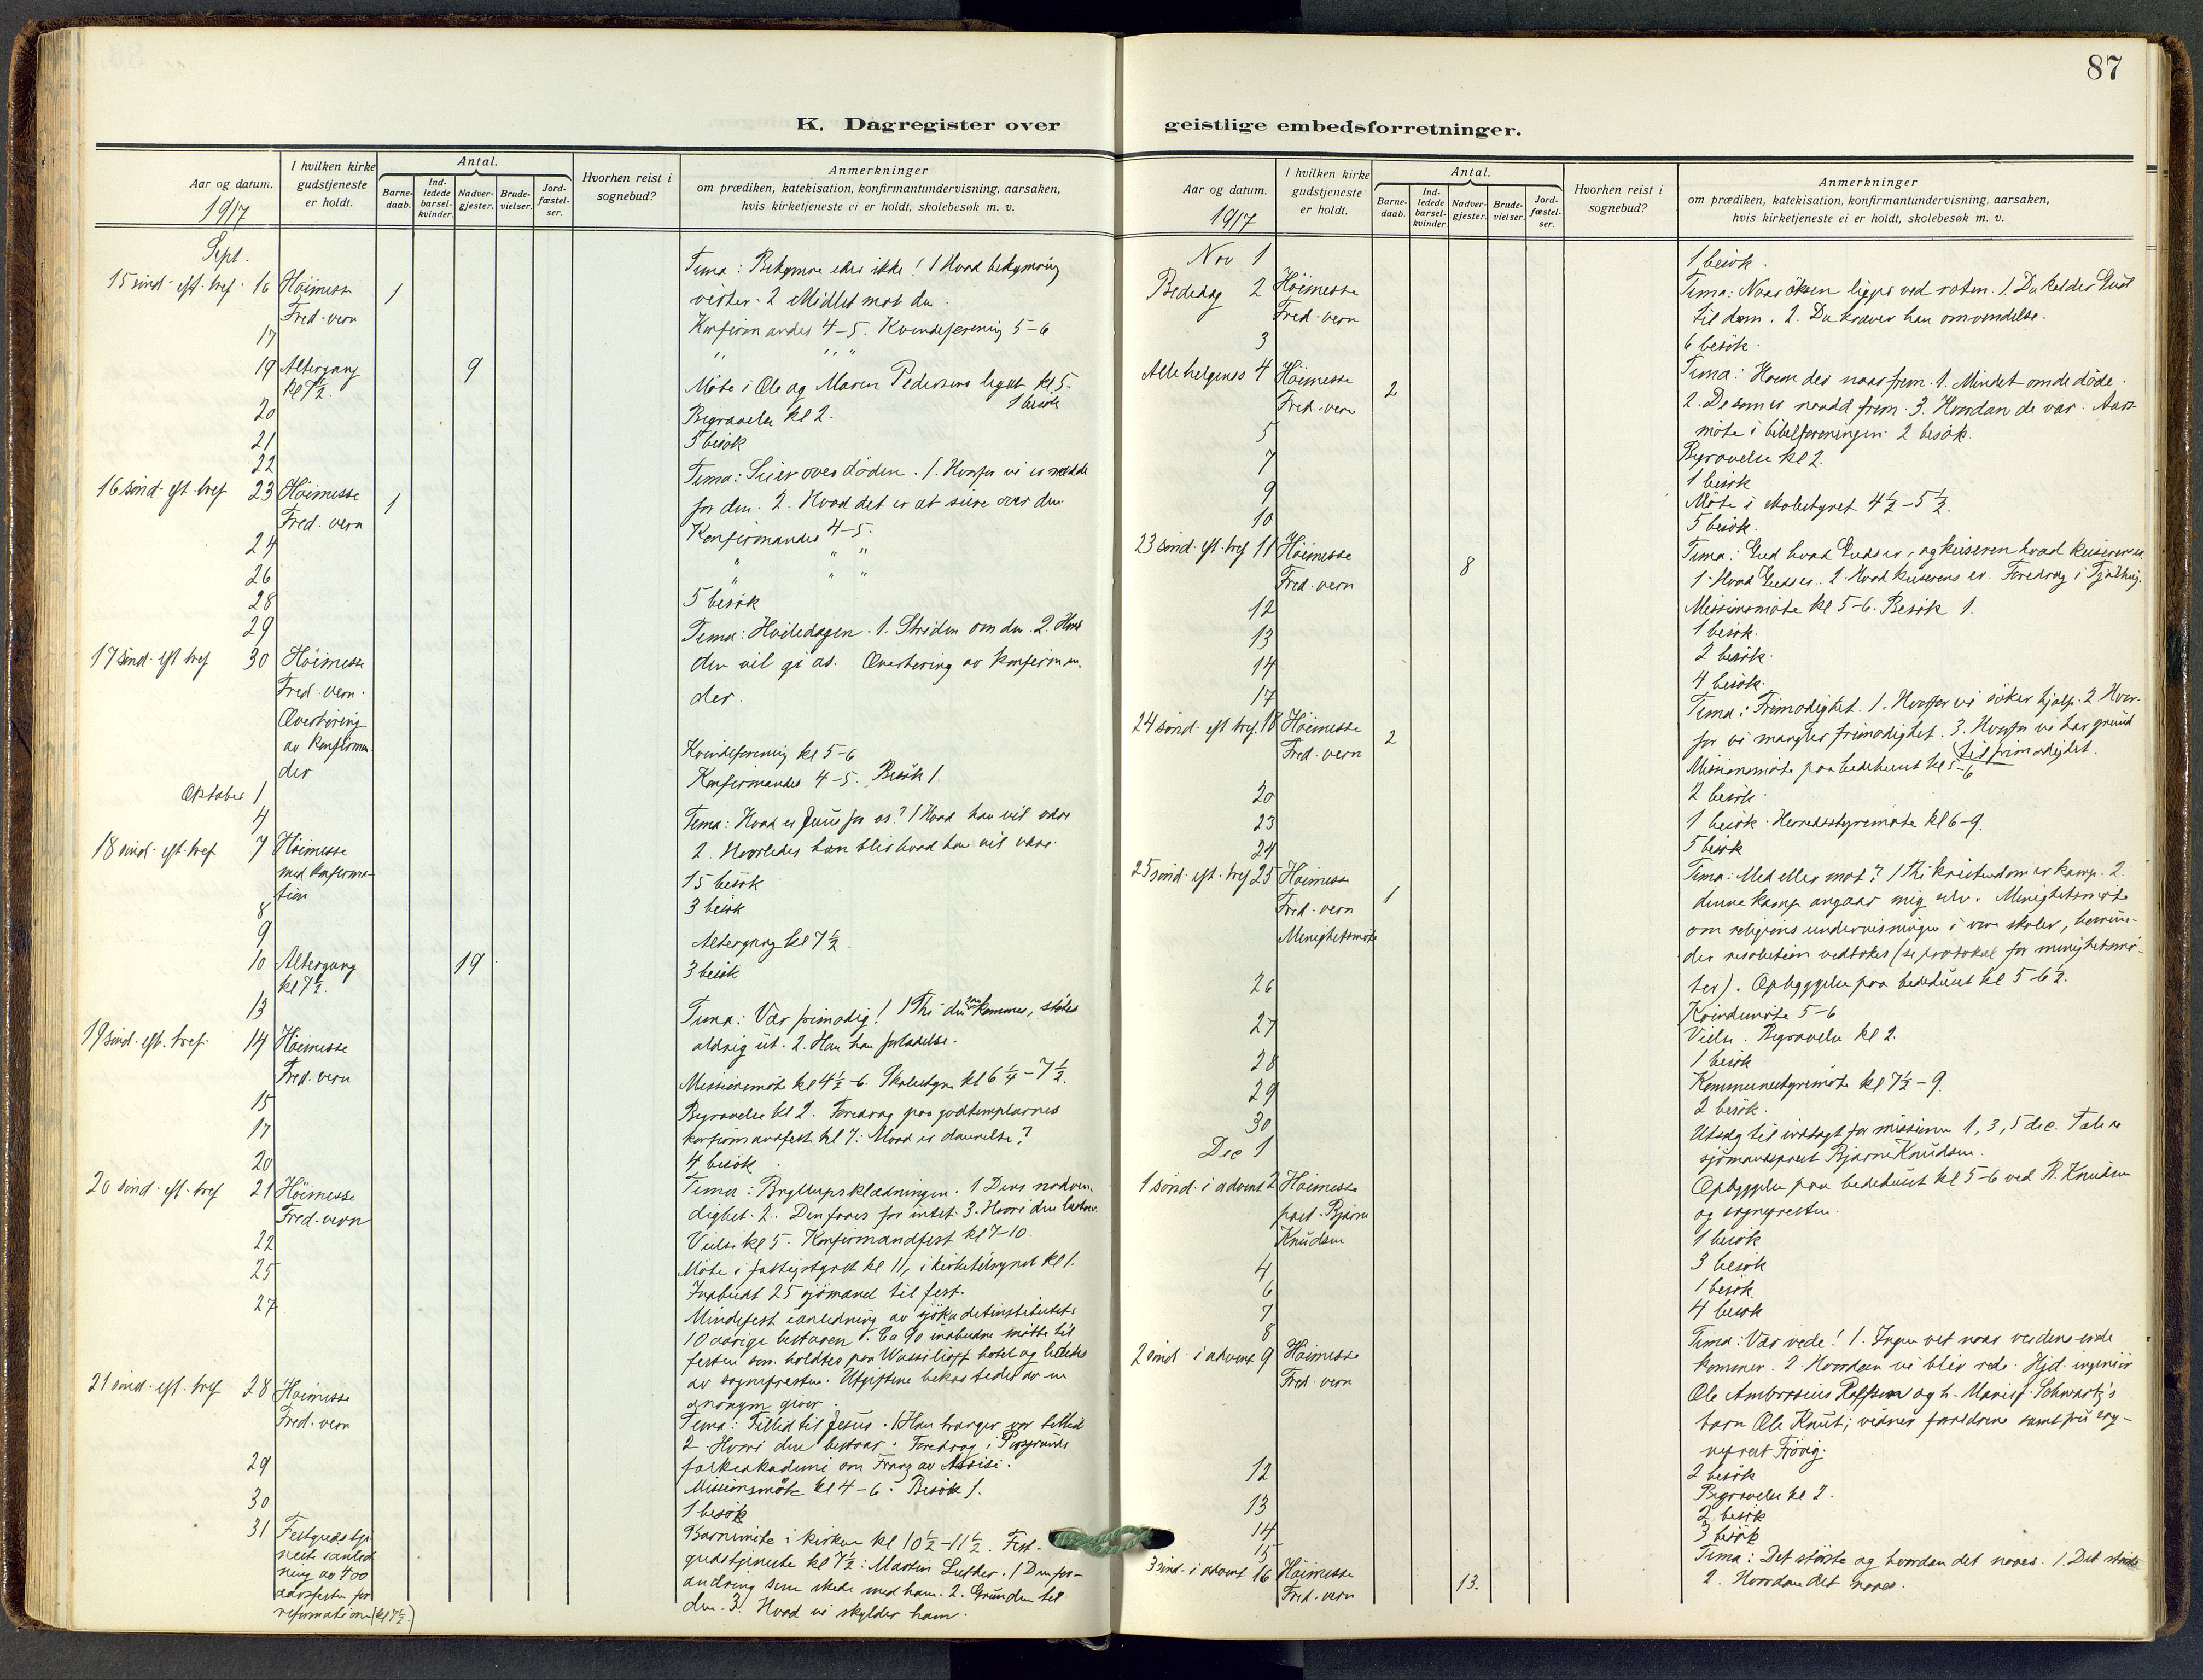 87
K. Dagregister over geistlige embedsforretninger.
Aar og datum.
1917
I hvilken kirke gudstjeneste er holdt.
Antal.
Barne-daab.
Ind-ledede barsel-kvinder.
Nadver-gjester.
Brude-vielser.
Jord-fæstel-ser.
Hvorhen reist i sognebud?
Anmerkninger
om prædiken, katekisation, konfirmantundervisning, aarsaken,
hvis kirketjeneste ei er holdt, skolebesøk m. v.
Sept.
15 sönd. eft. tref. 16 Höimesse 1
Fred.vern
Tema: Bekymre eder ikke! 1 Hvad bekymring
virker. 2 Midlet mot den.
17 Konfirmander 4-5. Kvindeforening 5-6
19 Altergang 9
kl 7½.
" " "
Möte i Ole og Maren Pedersens legat kl 5.
1 besök
20 Begravelse kl 2.
21 5 besök
22
16 sönd. eft. tref 23 Höimesse 1
Fred.vern
Tema: Seier over döden. 1. Hvorfor vi er rædde
for den. 2. Hvad det er at seire over den
24 Konfirmander 4-5.
26 " " "
28 " " "
29 5 besök
17 sönd. eft tref 30 Höimesse
Fred.vern.
Overhöring
av konfirman-
der
Tema: Hviledagen. 1. Striden om den. 2. Hvad
den vil gi os. Overhöring av konfirman-
der.
Oktober 1 Kvindeforening kl 5-6
4 Konfirmander 4-5. Besök 1.
18 sönd. eft. tref 7 Höimesse
med konfirma-
tion
Tema: Hvad er Jesus for os? 1 Hvad han vil være
2. Hvorledes han blir hvad han vil være.
8 15 besök
9 3 besök
10 Altergang 19
kl 7½.
Altergang kl 7½.
13 3 besök
19 sönd. eft. tref. 14 Höimesse
Fred.vern
Tema: Vær frimodig! 1 Thi den som kommer, stötes
aldrig ut. 2. Han har forladelse.
15 Missionsmöte kl 4½-6. Skolestyre kl 6¼-7½.
17 Begravelse kl 2. Foredrag paa godtemplarnes
konfirmandfest kl 7: Hvad er dannelse?
20 4 besök
20 sönd. eft. tref 21 Höimesse
Fred.vern
Tema: Bryllupsklædningen. 1 Dens nödven-
dighet. 2. Den faaes for intet. 3. Hvori den bestaar.
22 Vielse kl 5. Konfirmandfest kl 7-10.
25 Möte i fattigstyret kl 11, i kirketilsynet kl 1.
Indbudt 25 sjömænd til fest.
27 Mindefest i anledning av sjökadetinstitutets
10 aarige bestaaen. Ca 90 indbudne mötte til
festen som holdtes paa Wassilioff hotel og lededes
av sognepresten. Utgiftene bekostedes av en
anonym giver.
21 sönd. eft. tref 28 Höimesse
Fred.vern
Tema: Tillid til Jesus. 1 Han trænger vor tillid
2 Hvori den bestaar. Foredrag i Porsgrunds
folkeakademi om Frans av Assisi.
29 Missionsmöte kl 4-6. Besök 1.
30 1 besök
31 Festgudstje-
neste i anled
ning av 400
aarsfesten for
reformationen (kl 7½.)
Barnemöte i kirken kl 10½-11½. Fest-
gudstjeneste kl 7½: Martin Luther. 1 Den for-
andring som skede med ham. 2. Grunden til
den. 3. Hvad vi skylder ham.
Aar og datum.
1917
I hvilken kirke gudstjeneste er holdt.
Antal.
Barne-daab.
Ind-ledede barsel-kvinder.
Nadver-gjester.
Brude-vielser.
Jord-fæstel-ser.
Hvorhen reist i sognebud?
Anmerkninger
om prædiken, katekisation, konfirmantundervisning, aarsaken,
hvis kirketjeneste ei er holdt, skolebesøk m. v.
Nov 1 1 besök.
Bededag 2 Höimesse
Fred.vern
Tema: Naar öksen ligger ved roten. 1. Da kalder Gud
til dom. 2. Da kræver han omvendelse.
3 6 besök.
Allehelgens 4 Höimesse 2
Fred.vern
Tema: Hvem der naar frem. 1. Mindet om de döde.
2. De som er naadd frem. 3. Hvordan de var. Aars-
möte i bibelforeningen. 2 besök.
5 Begravelse kl 2.
7 1 besök
9 Möte i skolestyret 4½-5½.
10 5 besök.
23 sönd. eft. tref 11 Höimesse 8
Fred.vern
Tema: Gud hvad Guds er, og keiseren hvad keiserens er
1. Hvad Guds er. 2. Hvad keiserens er. Foredrag i Tjölling.
12 Missionsmöte kl 5-6. Besök 1.
13 1 besök.
14 2 besök.
17 4 besök.
24 sönd. eft tref. 18 Höimesse 2
Fred.vern
Tema: Frimodighet. 1. Hvorfor vi söker hjælp. 2 Hvor-
for vi mangler frimodighet. 3. Hvorfor vi har grund
til frimodighet.
Missionsmöte paa bedehuset kl 5-6
20 2 besök.
23 1 besök. Herredsstyremöte kl 6-9.
24 5 besök
25 sönd. eft. tref 25 Höimesse 1
Fred.vern
Menighetsmöte
Tema: Med eller mot? 1 Thi kristendom er kamp. 2.
denne kamp angaar mig selv. Menighetsmöte
om religionsundervisningen i vore skoler,
der resolution vedtokes (se protokol for menighetsmö-
ter). Opbyggelse paa bedehuset kl 5-6½.
26 Kvindemöte 5-6
27 Vielse. Begravelse kl 2.
28 1 besök
29 Kommunestyremöte kl 7½-9.
30 2 besök.
Dec 1 Utsalg til indtægt for missionen 1, 3, 5 dec. Tale av
sjömandsprest Bjarne Knudsen.
1 sönd. i advent 2 Höimesse
past. Bjarne
Knudsen
Opbyggelse paa bedehuset kl 5-6 ved B. Knudsen
og sognepresten.
4 1 besök
6 3 besök
7 1 besök
8 4 besök
2 sönd. i advent 9 Höimesse
Fred.vern
Tema: Vær rede! 1. Ingen vet naar verdens ende
kommer. 2. Hvordan vi blir rede. Hjd. ingeniör
Ole Ambrosius og h. Marie f. Schwartz's
barn Ole Knut; vidner forældrene samt fru sog-
neprest Frövig.
12 2 besök
13 Begravelse kl 2.
14 2 besök
15 3 besök
3 sönd. i advent 16 Höimesse 13.
Fred.vern
Tema: Det störste og hvordan det naaes. 1. Det störste
2. Hvordan det naaes.